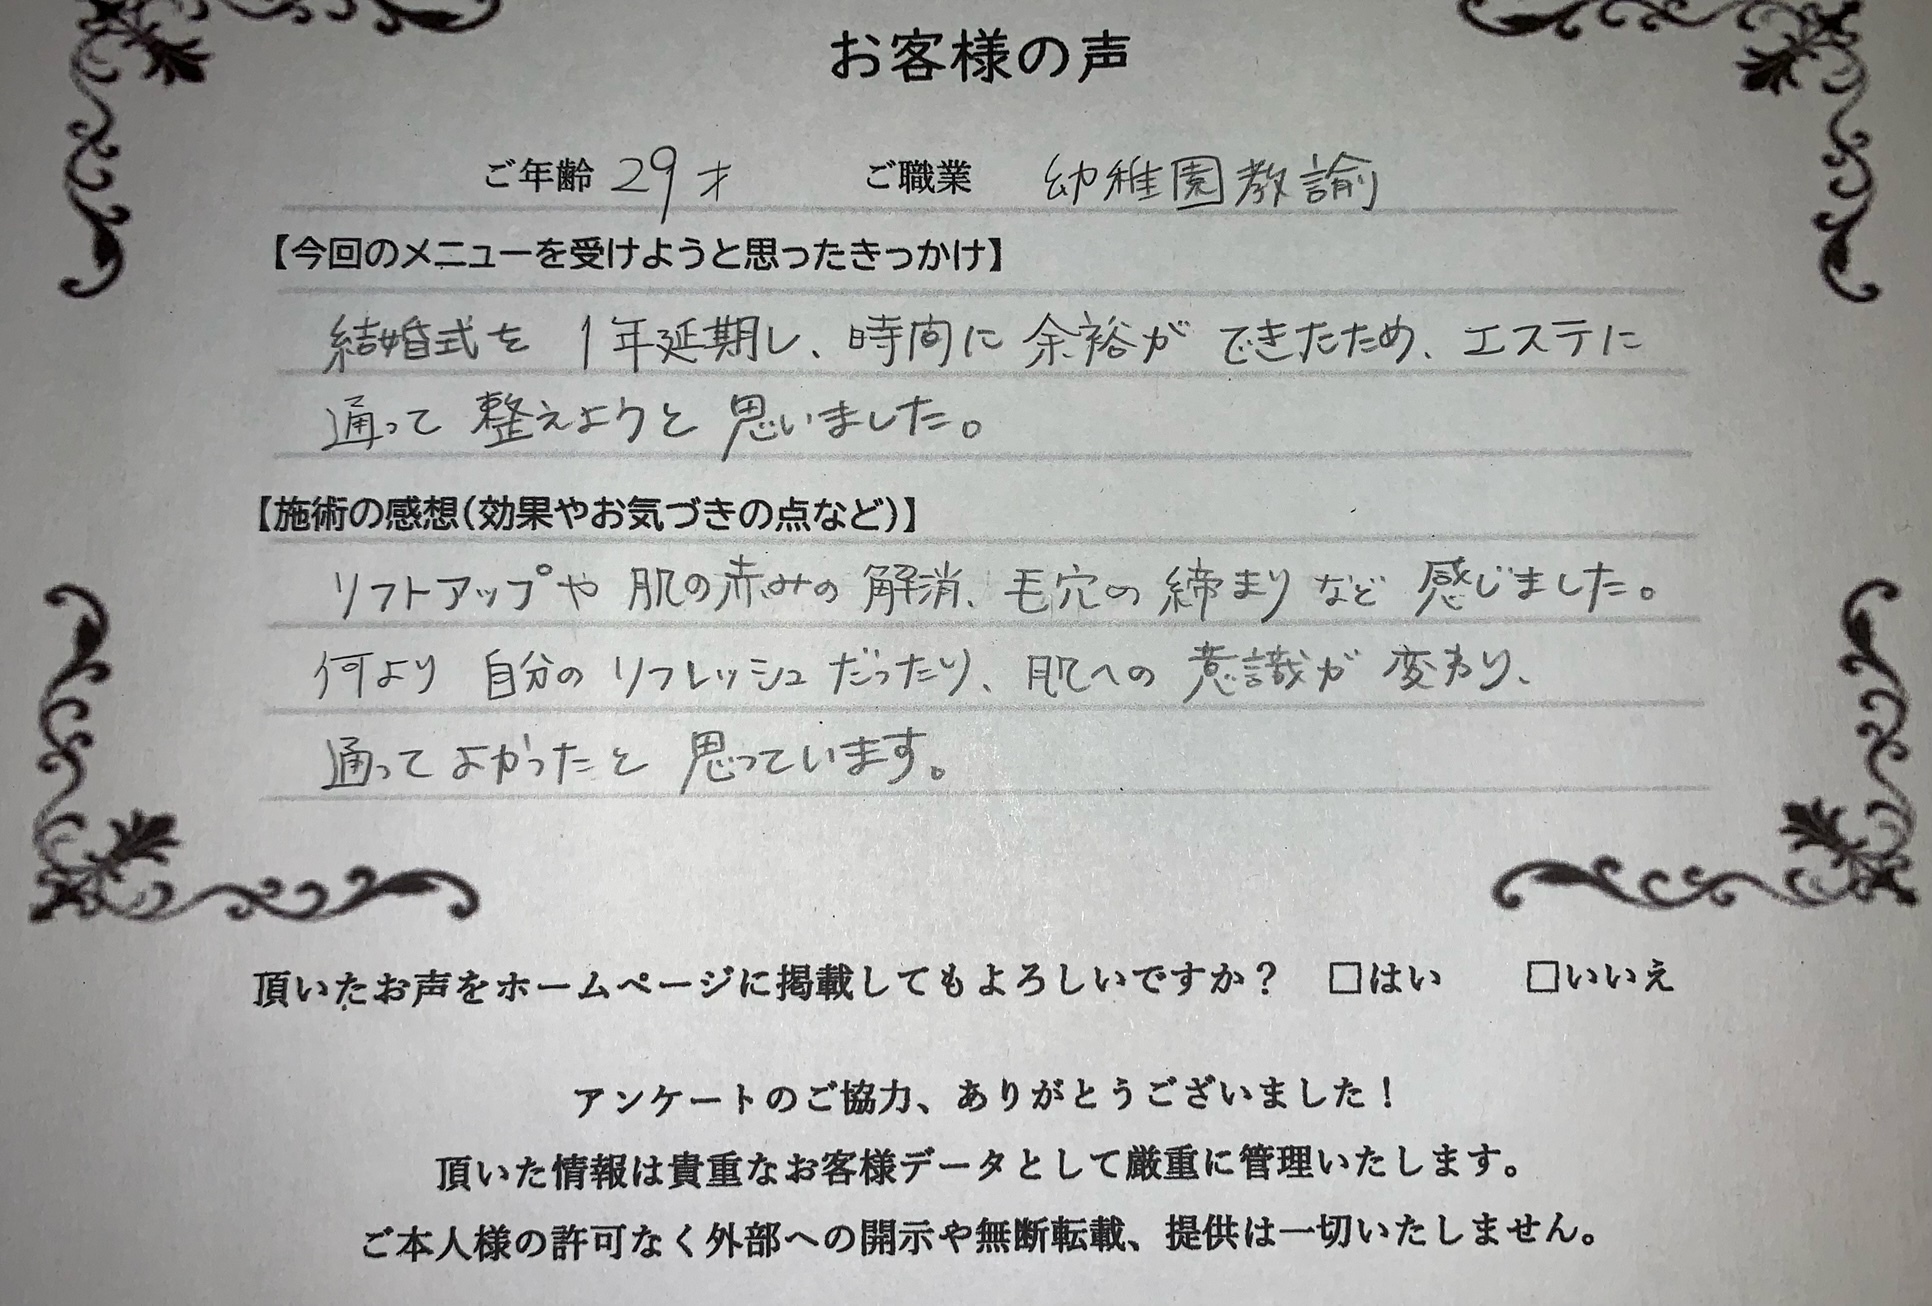 お客様の声
ご年齢 29才 ご職業 幼稚園教諭
【今回のメニューを受けようと思ったきっかけ】
結婚式を 1年延期し、時間に 余裕が できたため、エステに
通って 整えようと 思いました。
【施術の感想(効果やお気づきの点など)】
リフトアップや 肌の赤みの 解消、毛穴の 締まり など 感じました。
何より 自分の リフレッシュ だったり、肌への 意識が 変わり、
通って よかったと 思っています。
頂いたお声をホームページに掲載してもよろしいですか? □はい □いいえ
アンケートのご協力、ありがとうございました!
頂いた情報は貴重なお客様データとして厳重に管理いたします。
ご本人様の許可なく外部への開示や無断転載、提供は一切いたしません。